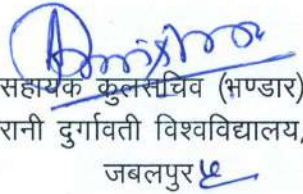 सहायक कुलसचिव (भण्डार)
रानी दुर्गावती विश्वविद्यालय,
जबलपुर